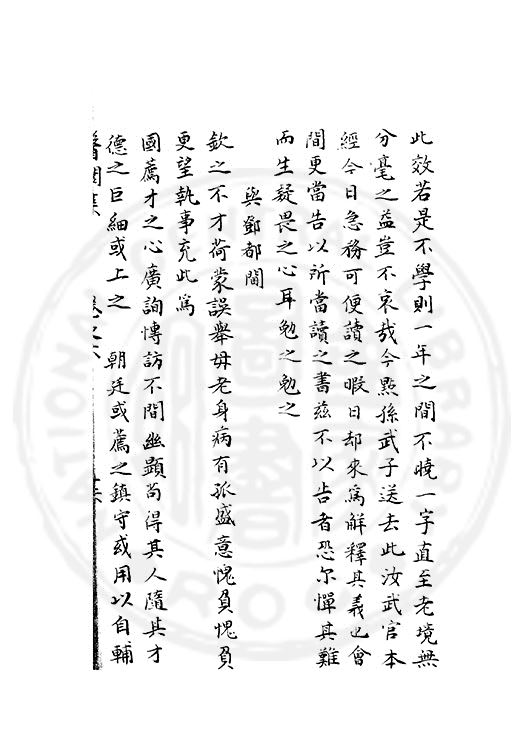 此效若是不學則一年之間不曉一字直至老境無
分毫之益豈不哀哉今㸃孫武子送去此汝武官本
經今日急務可便讀之暇日却來爲解釋其義也會
間更當告以所當讀之書茲不以告者恐尔憚其難
而生疑畏之心耳勉之勉之
與鄧都閫
欽之不才荷蒙誤舉毋老身病有孤盛意愧負愧負
更望執事充此爲
國薦才之心廣詢慱訪不間幽顯苟得其人隨其才
德之巨細或上之 朝廷或薦之鎮守或用以自輔